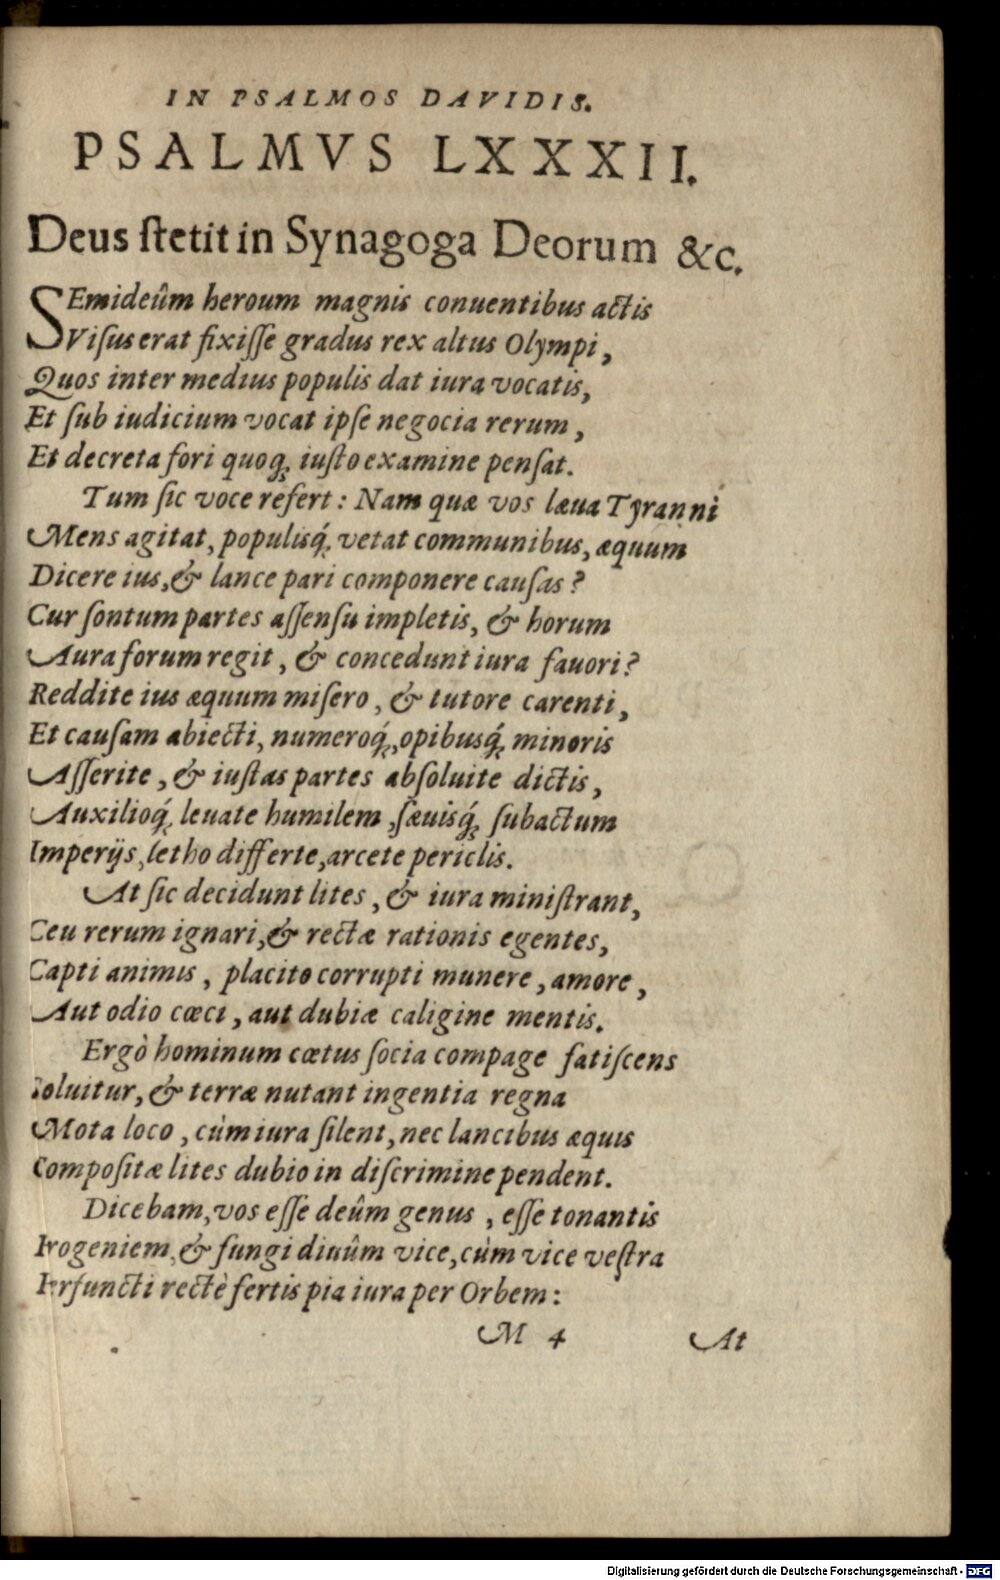 IN PSALMOS DAVIDIS.
PSALMVS LXXXII.
Deus ſtetit in Synagoga Deorum &c.
SEmideûm heroum magnis conuentibus actis
Viſus erat fixiſſe gradus rex altus Olympi,
Quos inter medius populis dat iura vocatis,
Et ſub iudicium vocat ipſe negocia rerum,
Et decreta fori quoq; iuſto examine penſat.
Tum ſic voce refert: Nam quæ vos læua Tyranni
Mens agitat, populisq́; vetat communibus, æquum
Dicere ius, & lance pari componere cauſas?
Cur ſontum partes aſſenſu impletis, & horum
Aura forum regit, & concedunt iura fauori?
Reddite ius æquum miſero, & tutore carenti,
Et cauſam abiecti, numeroq́;, opibusq́; minoris
Aſſerite, & iuſtas partes abſoluite dictis,
Auxilioq́; leuate humilem, ſæuisq́; ſubactum
Imperijs, letho differte, arcete periclis.
At ſic decidunt lites, & iura miniſtrant,
Ceu rerum ignari, & rectæ rationis egentes,
Capti animis, placito corrupti munere, amore,
Aut odio cœci, aut dubiæ caligine mentis.
Ergò hominum cœtus ſocia compage fatiſcens
Soluitur, & terræ nutant ingentia regna
Mota loco, cùm iura ſilent, nec lancibus æquis
Compoſitæ lites dubio in diſcrimine pendent.
Dicebam, vos eſſe deûm genus, eſſe tonantis
Progeniem, & fungi diuûm vice, cùm vice veſtra
Perfuncti rectè fertis pia iura per Orbem:
M 4 At
Digitalisierung gefördert durch die Deutsche Forschungsgemeinschaft - DFG